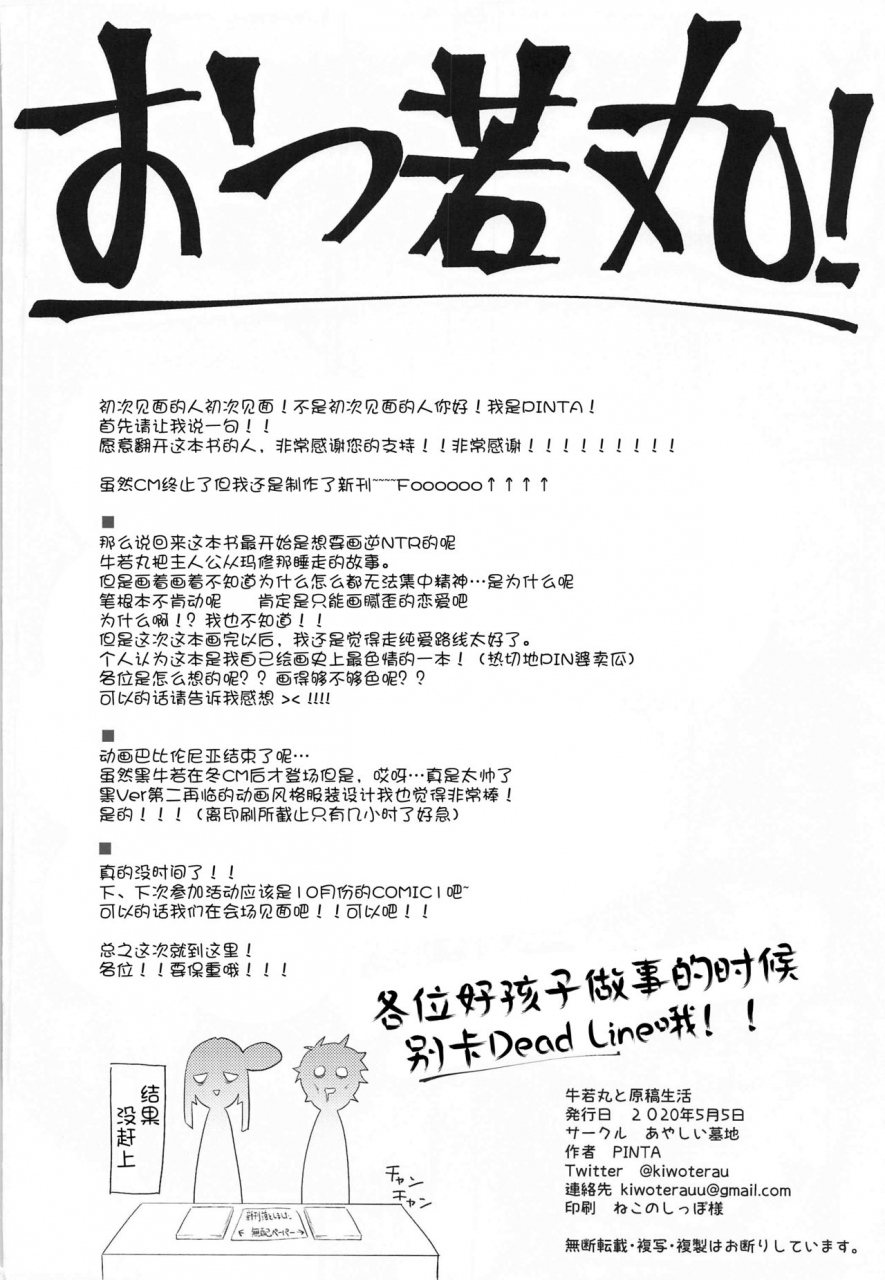 おつ若丸!
初次见面的人初次见面!不是初次见面的人你好!我是PINTA!
首先请让我说一句!!
愿意翻开这本书的人,非常感谢您的支持!!非常感谢!!!!!!!!!
虽然CM终止了但我还是制作了新刊~~~~Foooooo↑↑↑↑
■
那么说回来这本书最开始是想要画逆NTR的呢
牛若丸把主人公从玛修那睡走的故事。
但是画着画着不知道为什么怎么都无法集中精神…是为什么呢
笔根本不肯动呢　肯定是只能画腻歪的恋爱吧
为什么啊!?我也不知道!!
但是这次这本画完以后,我还是觉得走纯爱路线太好了。
个人认为这本是我自己绘画史上最色情的一本!(热切地PIN婆卖瓜)
各位是怎么想的呢??画得够不够色呢??
可以的话请告诉我感想 >< !!!!
■
动画巴比伦尼亚结束了呢…
虽然黑牛若在冬CM后才登场但是,哎呀…真是太帅了
黑Ver第二再临的动画风格服装设计我也觉得非常棒!
是的!!!(离印刷所截止只有几小时了好急)
■
真的没时间了!!
下、下次参加活动应该是10月份的COMIC1吧~
可以的话我们在会场见面吧!!可以吧!!
总之这次就到这里!
各位!!要保重哦!!!
各位好孩子做事的时候
别卡Dead Line哦!!
结果
没赶上
チャン
チャン
新刊落としました
← 無配ペーパー →
牛若丸と原稿生活
発行日　2020年5月5日
サークル　あやしい墓地
作者　PINTA
Twitter　@kiwoterau
連絡先 kiwoterauu@gmail.com
印刷　ねこのしっぽ様
無断転載・複写・複製はお断りしています。